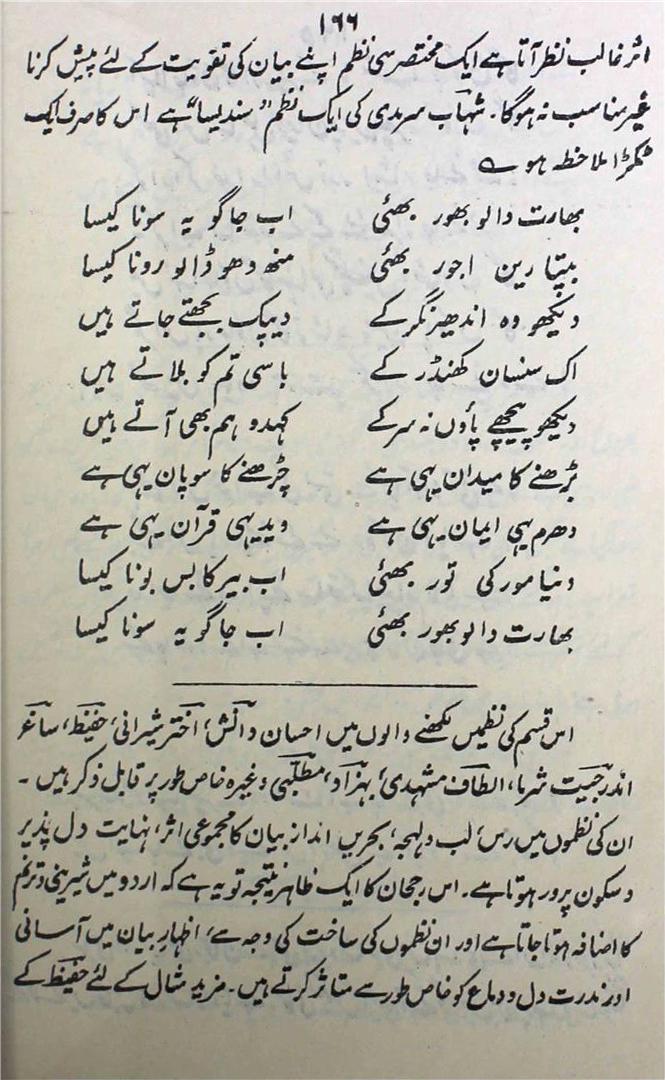 ۱۶۶
اثر غالب نظر آتا ہے ایک مختصر سی نظم اپنے بیان کی تقویت کے لئے پیش کرنا
غیر مناسب نہ ہوگا۔ شہاب سرمدی کی ایک نظم ”سندیسا“ ہے اس کا صرف ایک
ٹکڑا ملاحظہ ہو ؎
بھارت والو بھور بھئی اب جاگو یہ سونا کیسا
بپتا رین اجور بھئی منھ دھو ڈالو رونا کیسا
دیکھو وہ اندھیر نگر کے دیپک بجھتے جاتے ہیں
اک سنسان کھنڈر کے باسی تم کو بلاتے ہیں
دیکھو پیچھے پاؤں نہ سر کے کہدو ہم بھی آتے ہیں
بڑھنے کا میدان یہی ہے چڑھنے کا سوپان یہی ہے
دھرم یہی ایمان یہی ہے وید یہی قرآن یہی ہے
دنیا مور کی تور بھئی اب بیر کا بس بونا کیسا
بھارت والو بھور بھئی اب جاگو یہ سونا کیسا
اس قسم کی نظمیں لکھنے والوں میں احسان دانش، اختر شیرانی، حفیظ، ساغر
اندرجیت شرما، الطاف مشہدی، بہزاد، مطلبی وغیرہ خاص طور پر قابل ذکر ہیں۔
ان کی نظموں میں رس، لب و لہجہ، بحریں انداز بیان کا مجموعی اثر، نہایت دل پذیر
و سکون پرور ہوتا ہے۔ اس رجحان کا ایک ظاہر نتیجہ تو یہ ہے کہ اردو میں شیرینی و ترنم
کا اضافہ ہوتا جاتا ہے اور ان نظموں کی ساخت کی وجہ سے، اظہار بیان میں آسانی
اور ندرت دل و دماغ کو خاص طور سے متاثر کرتے ہیں۔ مزید مثال کے لئے حفیظ کے